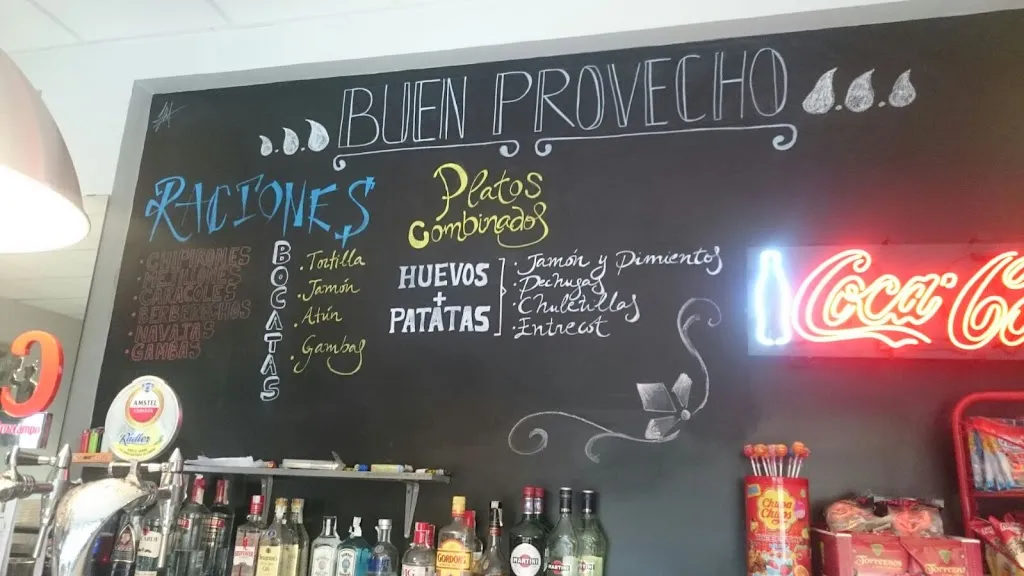 BUEN PROVECHO
RACIONES
· CHIPIRONES
· CARACOLES
· BERBERECHOS
· NAVAJAS
· GAMBAS
BOCATAS
· Tortilla
· Jamón
· Atún
· Gambas
Platos
Combinados
HUEVOS
+
PATATAS
· Jamón y Pimientos
· Pechugas
· Chuletillas
· Entrecot
Coca-Co
AMSTEL
Radler
GORDON'S
MARTINI
MARTINI
Chupa
Chups
Torreznos